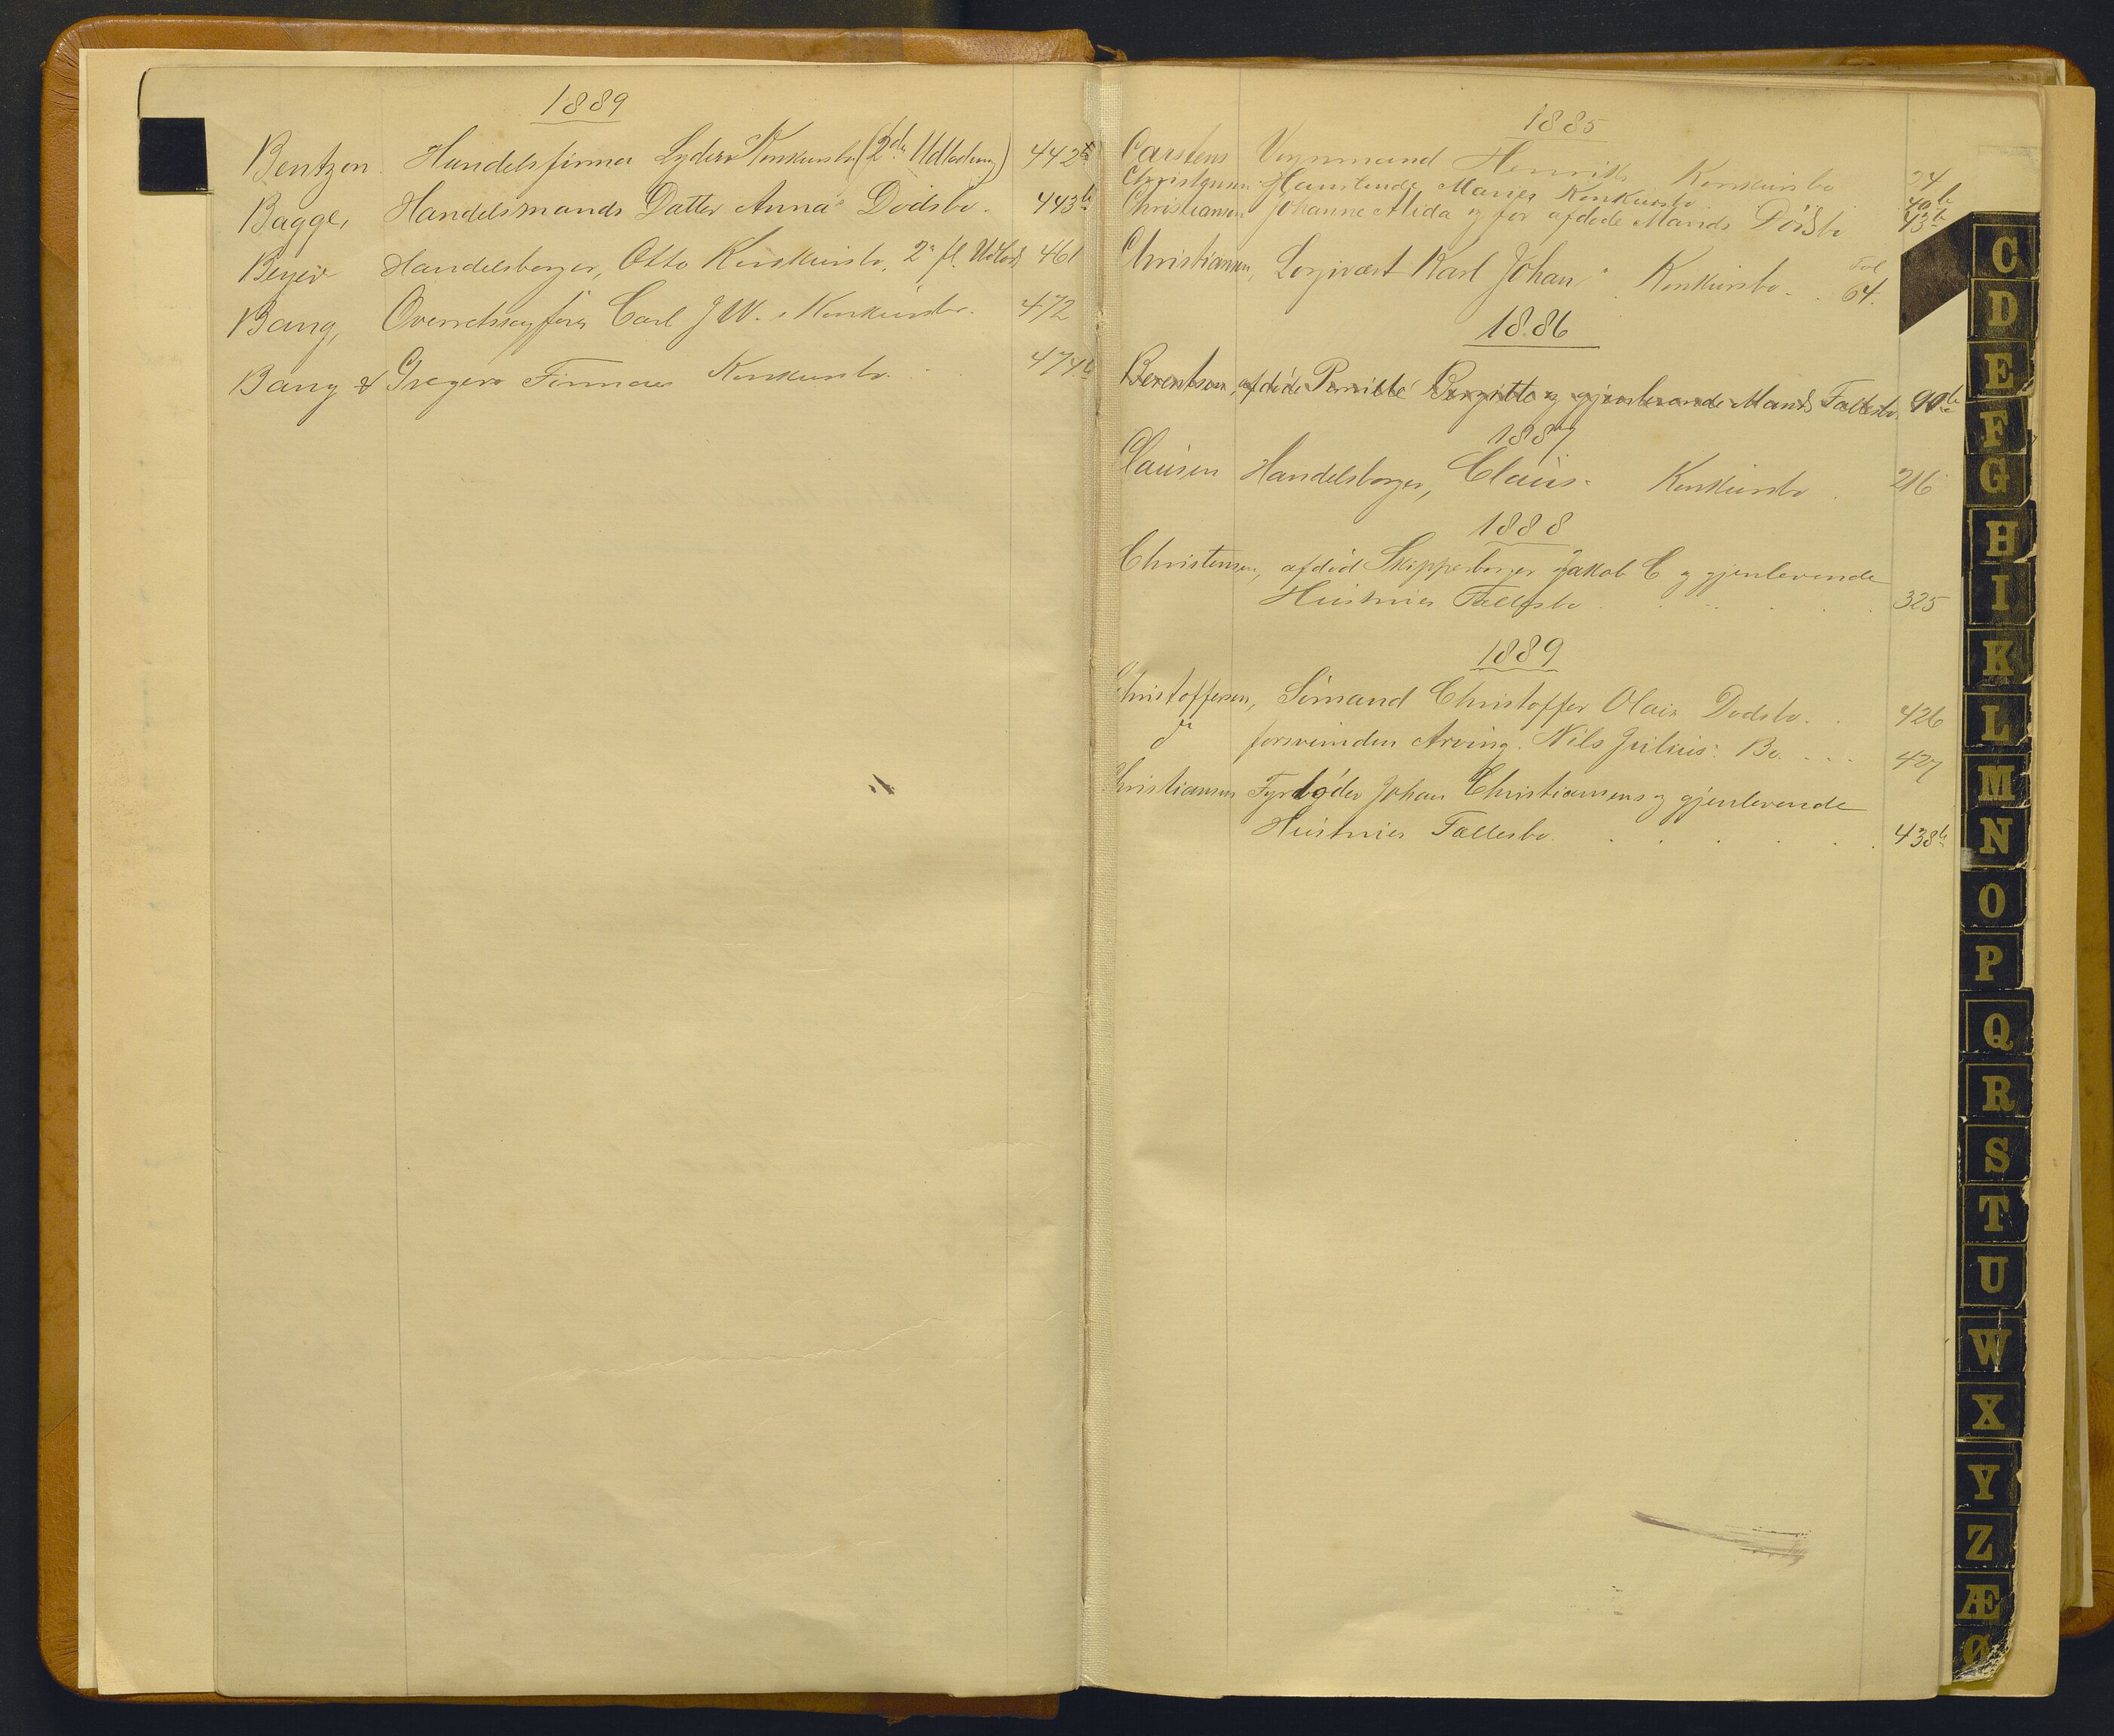 1889
Bentzon Handelsfirma Lyder Konkursbo (2den Udlodning) 442b
Bagge, Handelsmands Datter Anna's Dødsbo. 443b
Beyer Handelsborger, Otto Konkursbo, 2n fl. Udlodn 461
Bang, Overretssagfører Carl J W. s Konkursbo. 472
Bang & Gregers Firmaes Konkursbo. 474b
1885
Carstens Vognmand Henriks Konkursbo 24
Handlende Maries Konkursbo 40b
Christiansen Johanne Alida og før afdøde Mands Dødsbo 43b
Christiansen, Losjivært Karl Johan s Konkursbo Fol 64.
1886
Berentsen, afdøde Pernille Bergitte og gjenlevende Mands Fællesbo. 90b
1887
Clausen Handelsborger, Claus's Konkursbo 216
1888
Christensen, afdød Skipperborger Jakob C og gjenlevende
Hustrues Fællesbo 325
1889
Christoffersen, Sømand Christoffer Olais Dødsbo. 426
forsvunden Arving. Nils Julius' Bo. 427
Christiansen Fyrbøder Johan Christiansens og gjenlevende
Hustrues Fællesbo 438b
C
D
E
F
G
H
I
K
L
M
N
O
P
Q
R
S
T
U
W
X
Y
Z
Æ
Ø